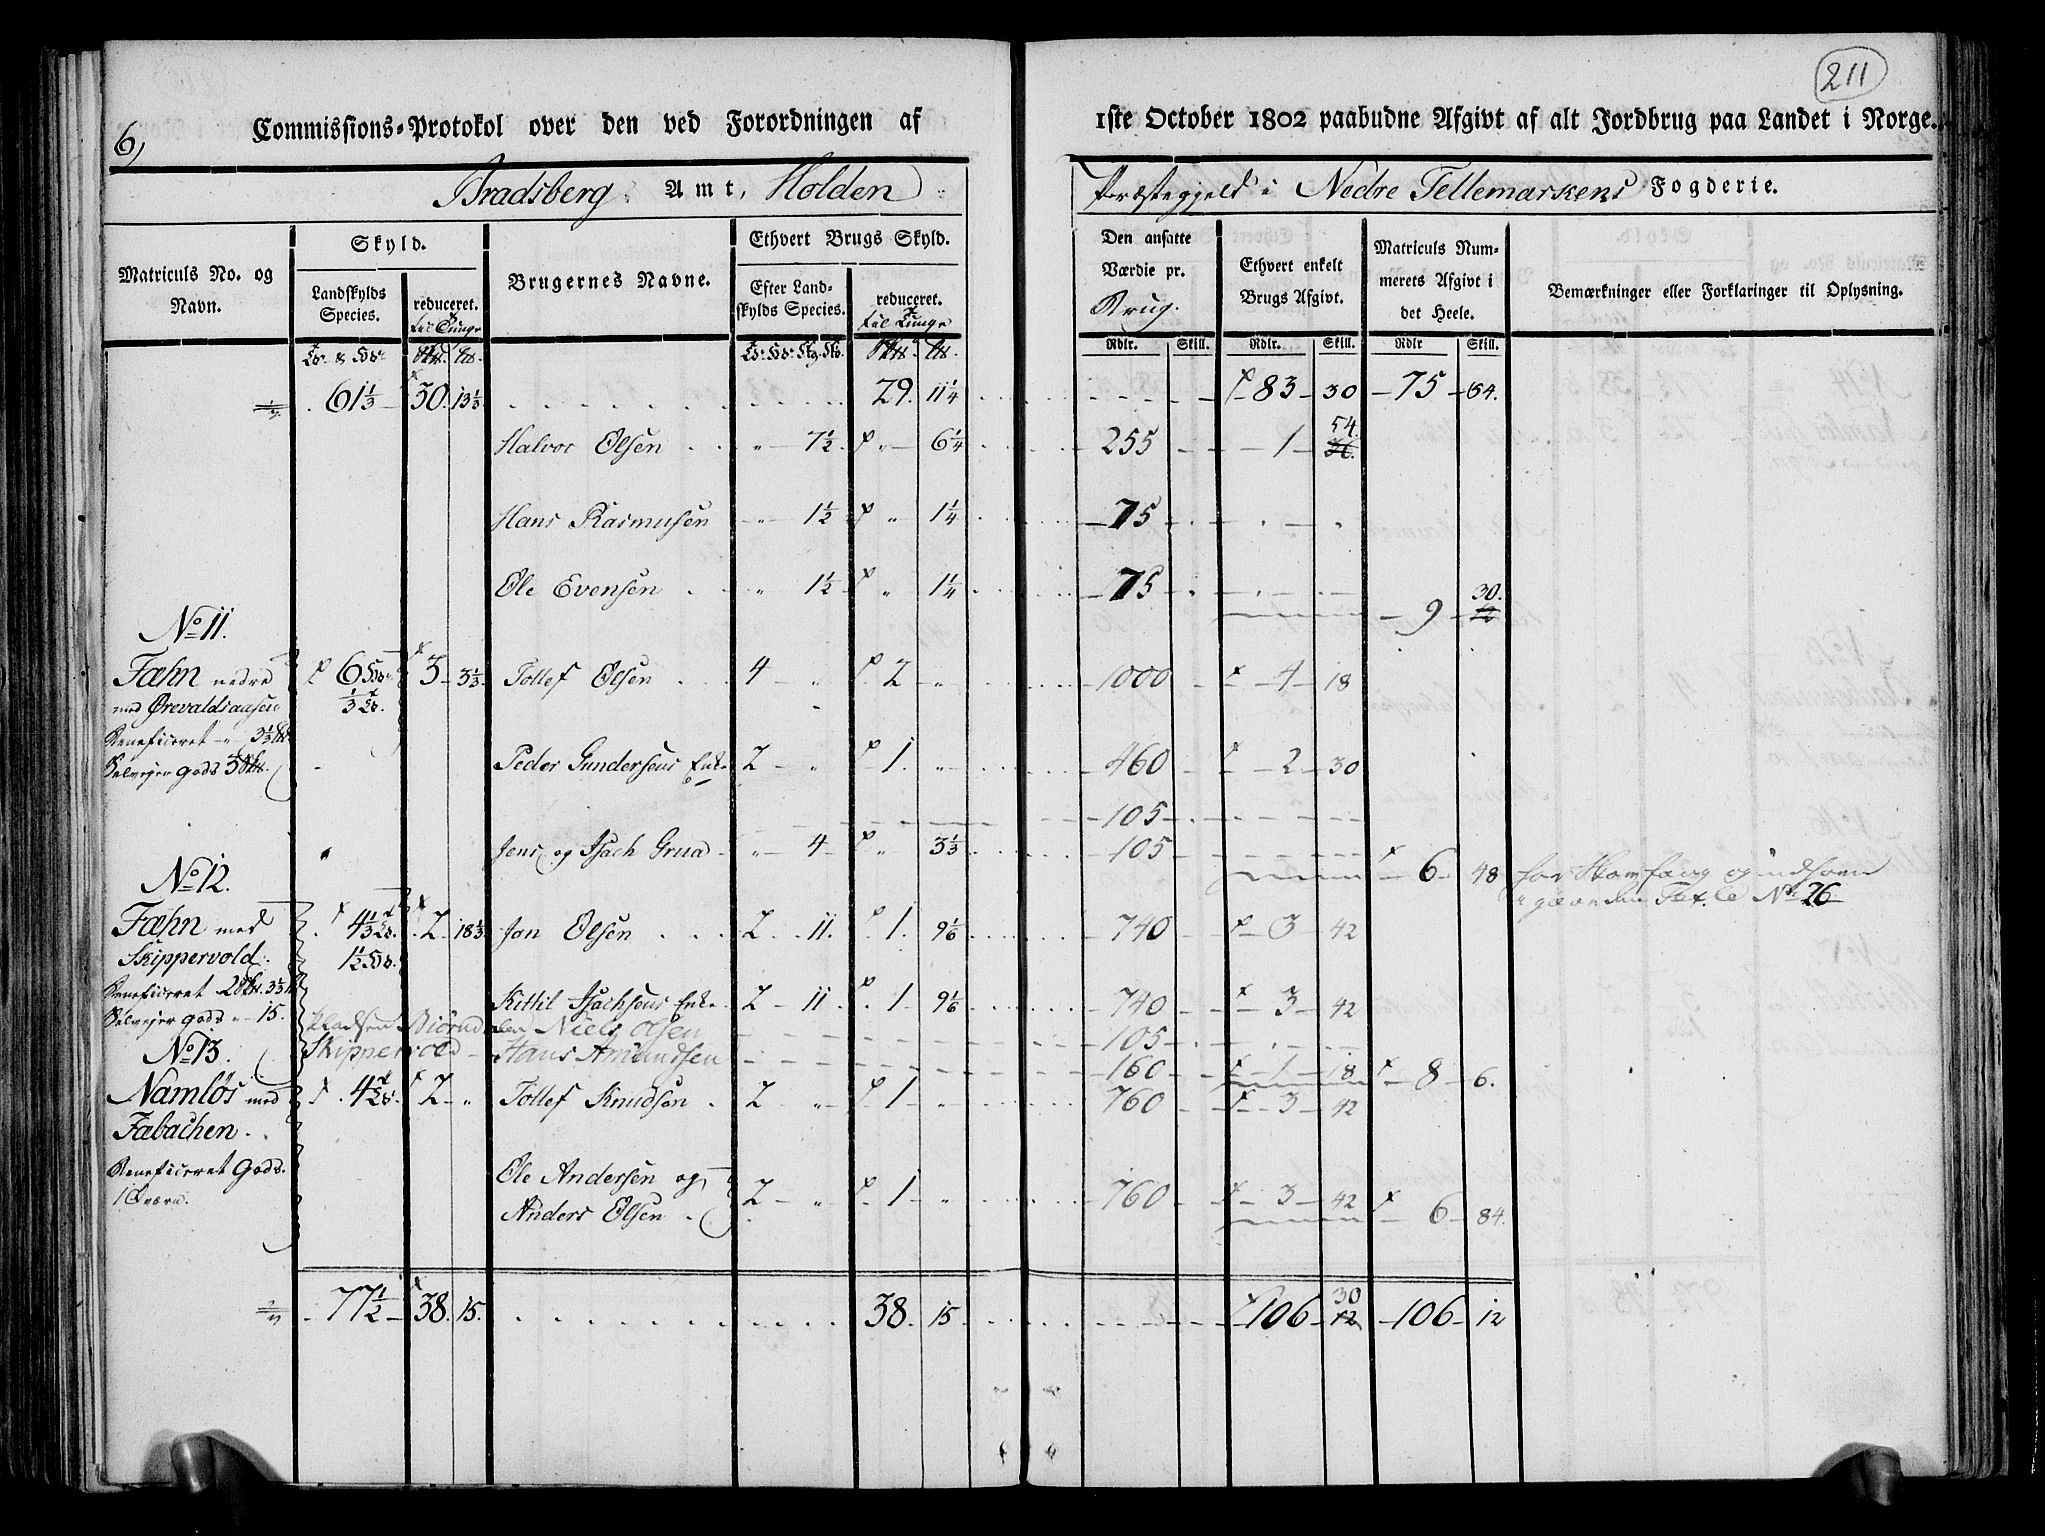 211
6)
Commissions-Protokol over den ved Forordningen af 1ste October 1802 paabudne Afgivt af alt Jordbrug paa Landet i Norge.
Bradsberg Amt, Holden Præstegjeld i Nedre Tellemarkens Fogderie.
Matriculs No. og Navn.
Skyld.
Landskylds Species.
reduceret. til Tunge
Brugernes Navne.
Ethvert Brugs Skyld.
Efter Landskylds Species.
reduceret. til Tunge
Den ansatte Værdie pr. Brug.
Ethvert enkelt Brugs Afgivt.
Matriculs Nummerets Afgivt i det Heele.
Bemærkninger eller Forklaringer til Oplysning.
Rdlr. Skill. Rdlr. Skill. Rdlr Skill.
61 1/3 30. 13 1/3 29. 11 1/4 83 30 75 64.
Halvor Olsen 7 1/2 6 1/4 255 1 54.
Hans Rasmusen 1 1/2 1 1/4 75
Ole Evensen 1 1/2 1 1/4 75
9 30.
No 11.
Fæhn nedre 6 3 3 1/3 Tollef Olsen 4 2 1000 4 18
med Ørevaldsaasen 1/3
Beneficeret 3 1/3
Selvejer gods 3
Peder Gundersens Enke 2 1 460 2 30
105
Jens og Isach Grua 4 3 1/3 105
6 48 for Havnfang og
No 26
No 12.
Fæhn med 4 1/3 2 18 1/3 Jon Olsen 2 11. 1. 9 1/6 740 3 42
Skippervold. 1 1/2
Beneficeret 2 3 1/3
Kittil Isachsens Enke 2 11 1. 9 1/6 740 3 42
Selvejer gods 15.
Pladsen Biørndalen Niels Olsen 105
Skippervold Hans Amundsen 160 1 18 8 6.
No 13.
Namløs med 4 2 Tollef Knudsen 2 1 760 3 42
Fæbachen.
Beneficeret Gods.
Ole Andersen og
Anders Olsen 2 1 760 3 42 6 84.
77 1/2 38. 15. 38. 15 106 30 12 106 12